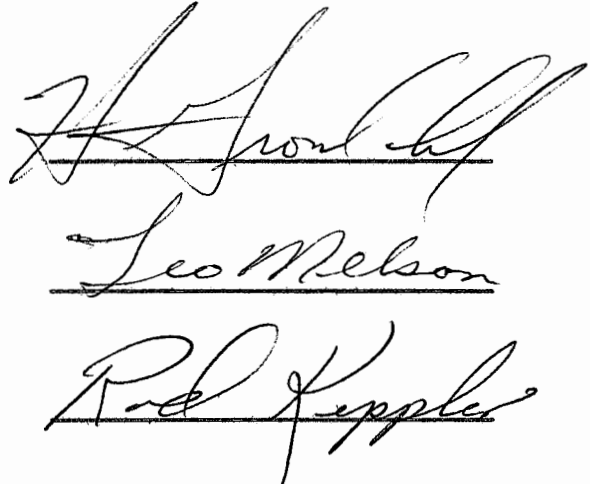 H
Leo Melson
Rod Keppler